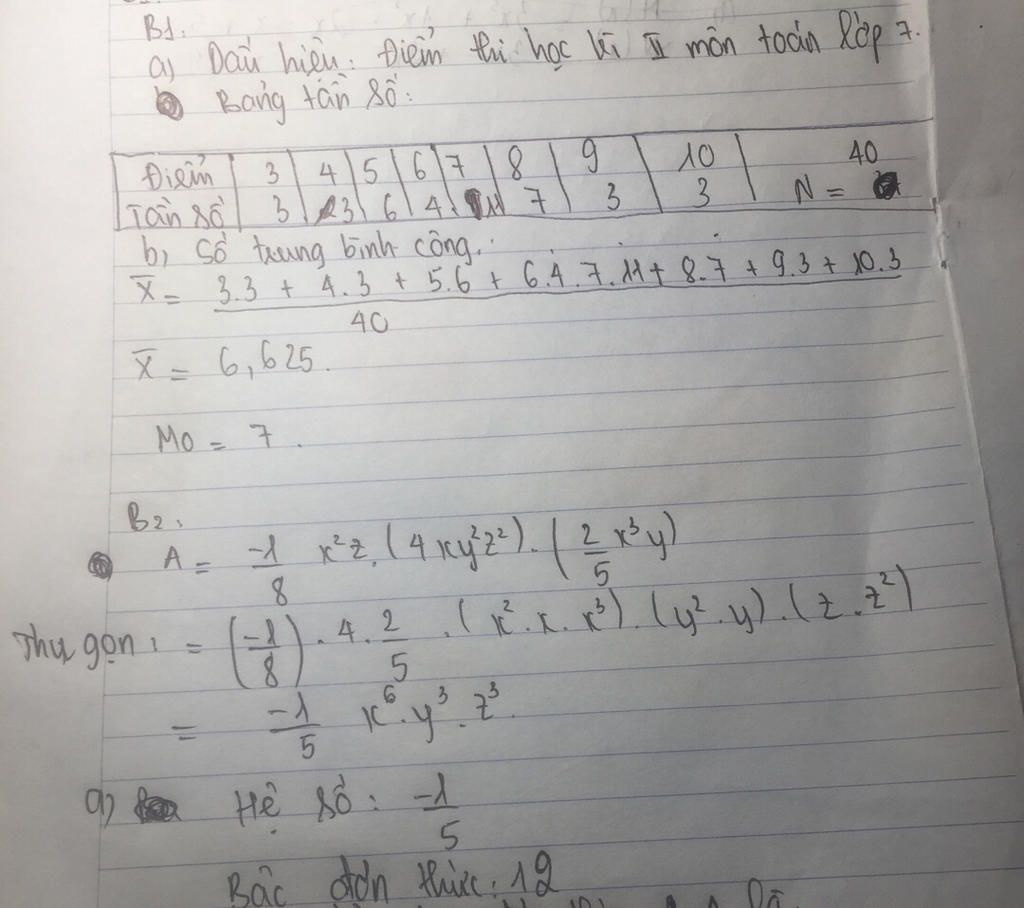 B1.
a) Dấu hiệu: Điểm thi học kì II môn toán lớp 7.
Bảng tần số:
Điểm 3 4 5 6 7 8 9 10 40
Tần số 3 3 6 4 11 7 3 3 N =
b, Số trung bình cộng:
X̅ = 3.3 + 4.3 + 5.6 + 6.4.7.11 + 8.7 + 9.3 + 10.3
40
X̅ = 6,625.
M0 = 7.
B2.
A = -1/8 x²z.(4xy²z²).(2/5 x³y)
Thu gọn: = (-1/8).4.2/5.(x².x.x³).(y².y).(z.z²)
= -1/5 x⁶.y³.z³.
a) Hệ số: -1/5
Bậc đơn thức: 12